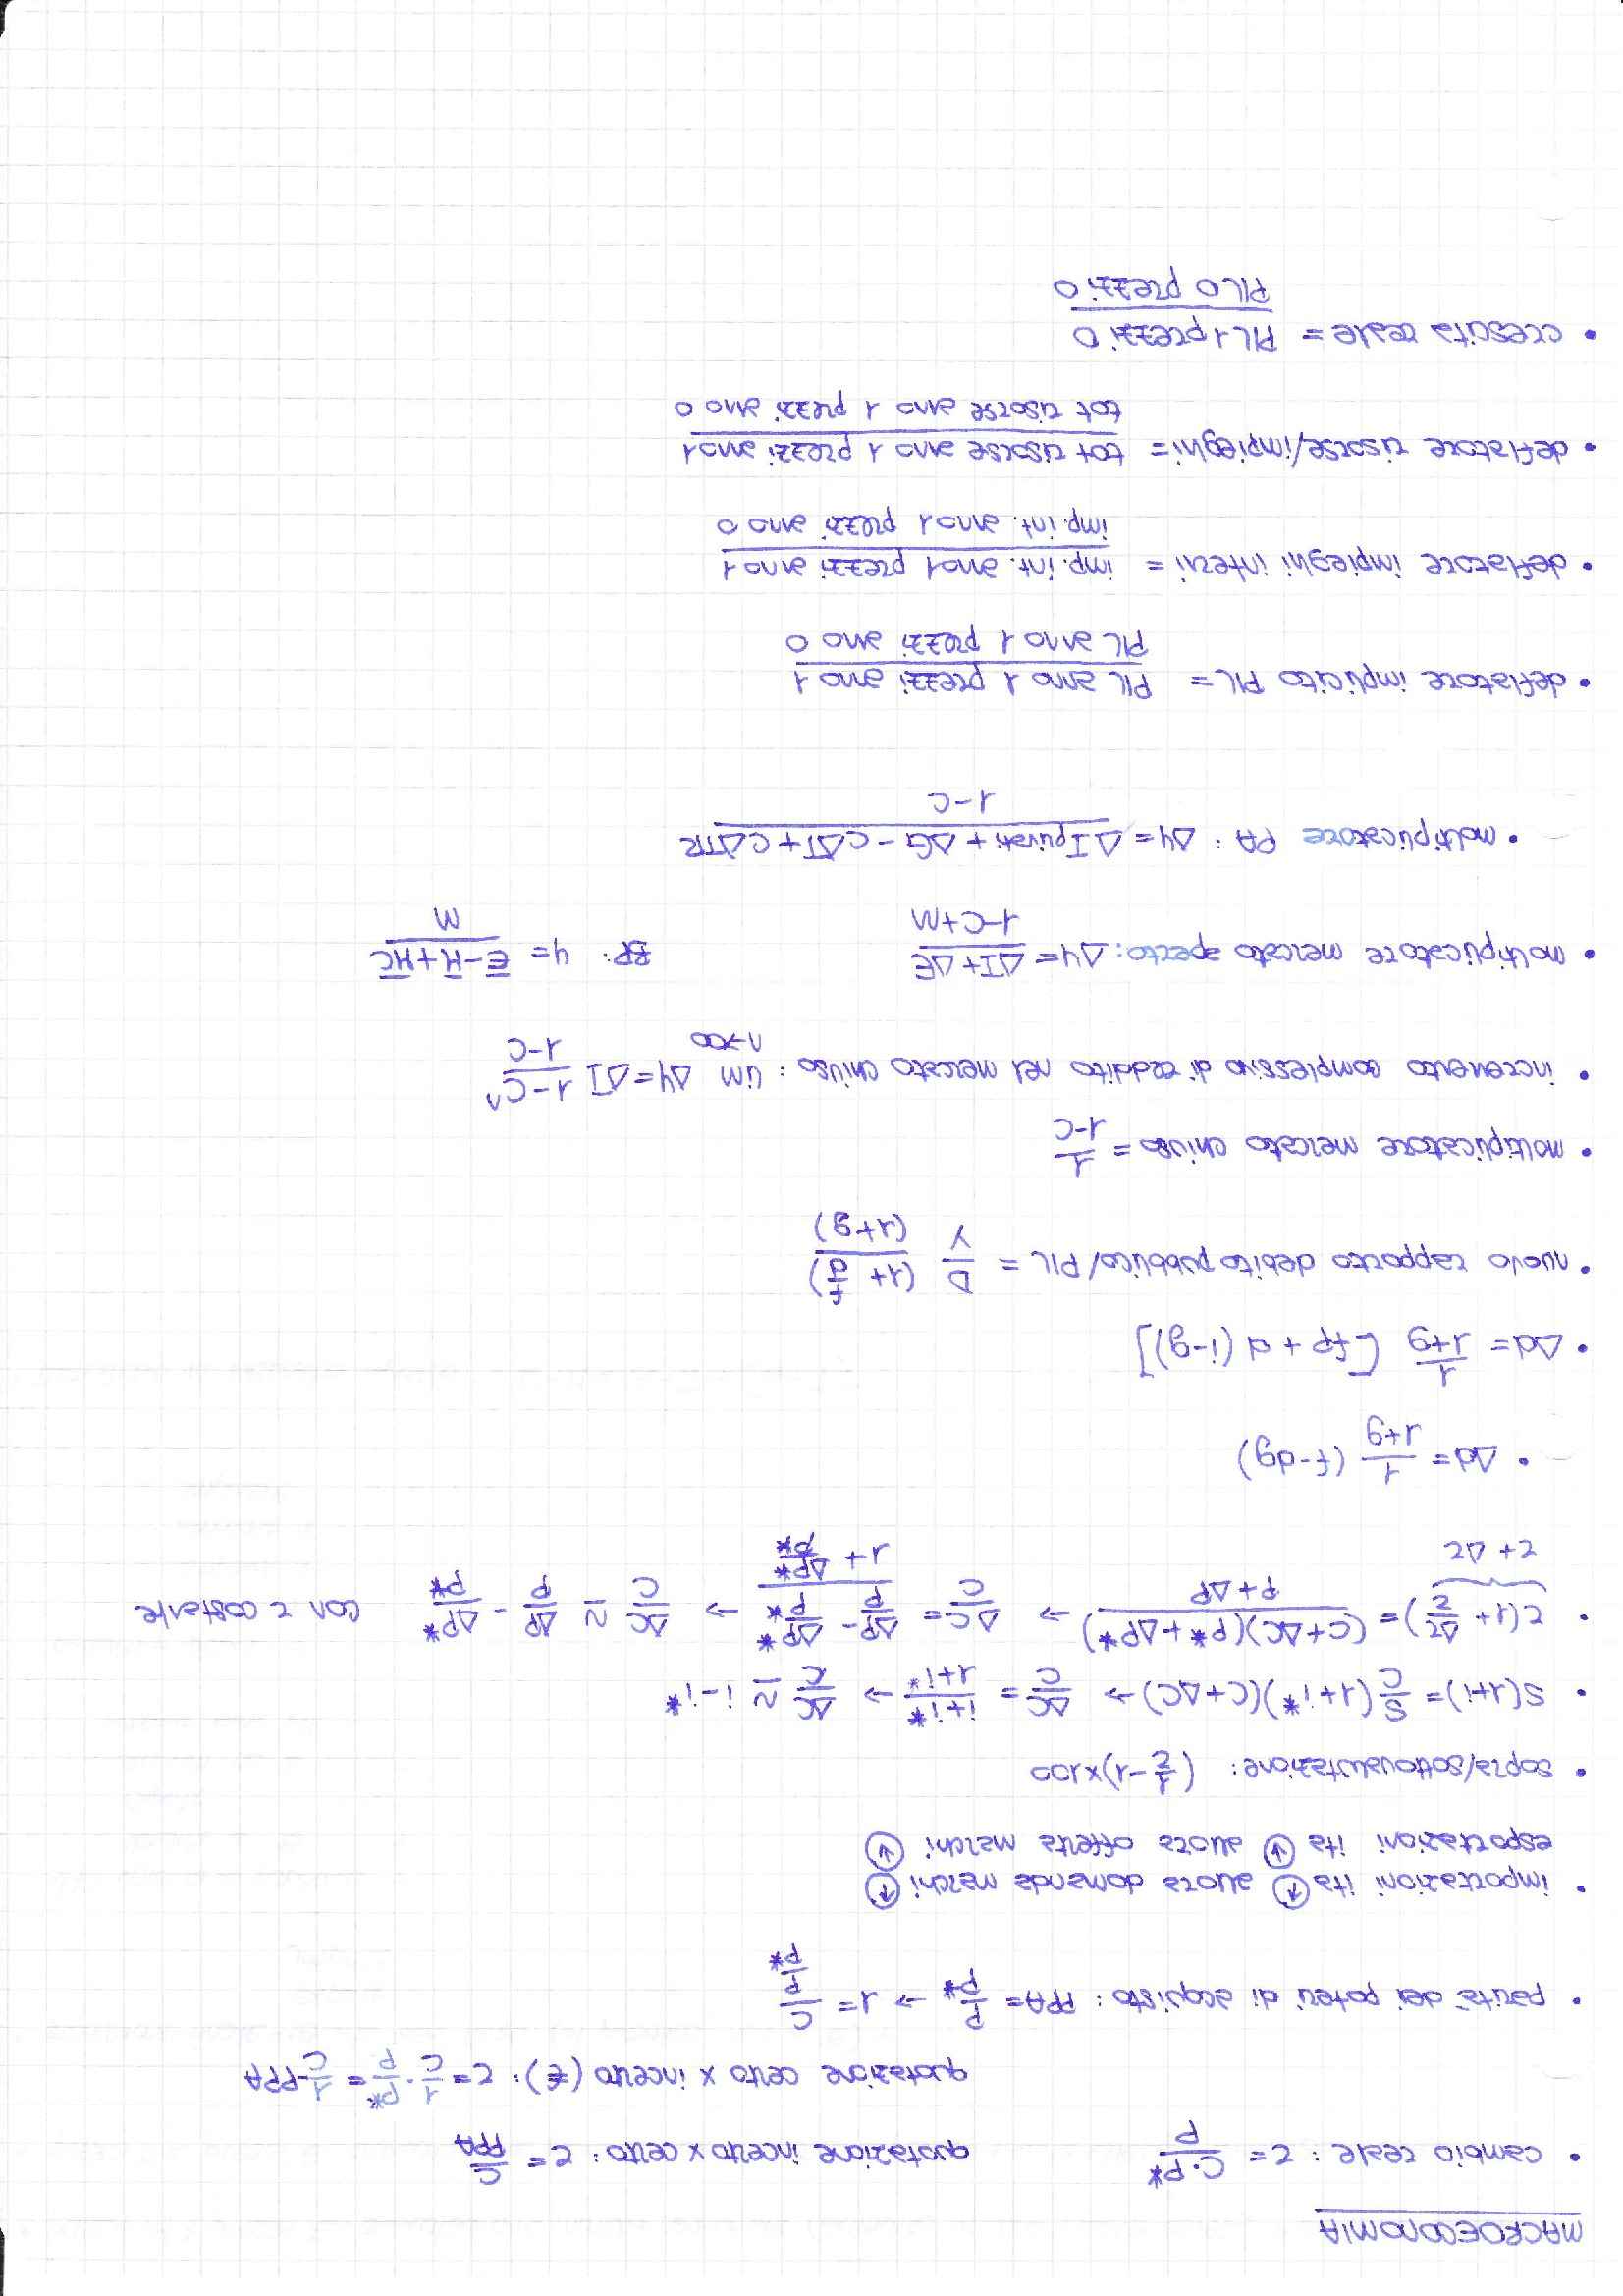 MACROECONOMIA
• cambio reale: r = (C·P*)/P quotazione incerto x certo: r = C/PPA
quotazione certo x incerto (£): r = 1/C · P*/P = 1/C · PPA
• parita' dei poteri di acquisto: PPA = P/P* → 1 = C/(P/P*)
• importazioni ita ↓ allora domanda marchi ↓
esportazioni ita ↑ allora offerta marchi ↑
• sopra/sottovalutazione: 100 x (1 - 1/r)
• S(1+i) = S/C (1+i*)(C+ΔC) → ΔC/C = (i+i*)/(1+i*) → ΔC/C ≃ i-i*
• r(1+ Δr/r) = (C+ΔC)(P*+ΔP*)/(P+ΔP) → ΔC/C = (ΔP/P - ΔP*/P*)/(ΔP*/P* + 1) → ΔC/C ≃ ΔP/P - ΔP*/P* con r costante
r + Δr
• Δd = 1/(1+g) (f-dg)
• Δd = 1/(1+g) [fp + d (i-g)]
• nuovo rapporto debito pubblico/PIL = D/Y (1+ f/d)/(1+g)
• moltiplicatore mercato chiuso = 1/(1-c)
• incremento complessivo di reddito nel mercato chiuso: lim n→∞ Δy = ΔI (1-cⁿ)/(1-c)
• moltiplicatore mercato aperto: Δy = (ΔI+ΔE)/(1-c+m) BP: y = (E-M+MC)/m
• moltiplicatore PA: Δy = (ΔIprivati + ΔG - cΔT + cΔTR)/(1-c)
• deflatore implicito PIL = PIL anno 1 prezzi anno 1
PIL anno 1 prezzi anno 0
• deflatore impieghi interni = imp. int. anno 1 prezzi anno 1
imp. int. anno 1 prezzi anno 0
• deflatore risorse/impieghi = tot risorse anno 1 prezzi anno 1
tot risorse anno 1 prezzi anno 0
• crescita reale = PIL 1 prezzi 0
PIL 0 prezzi 0